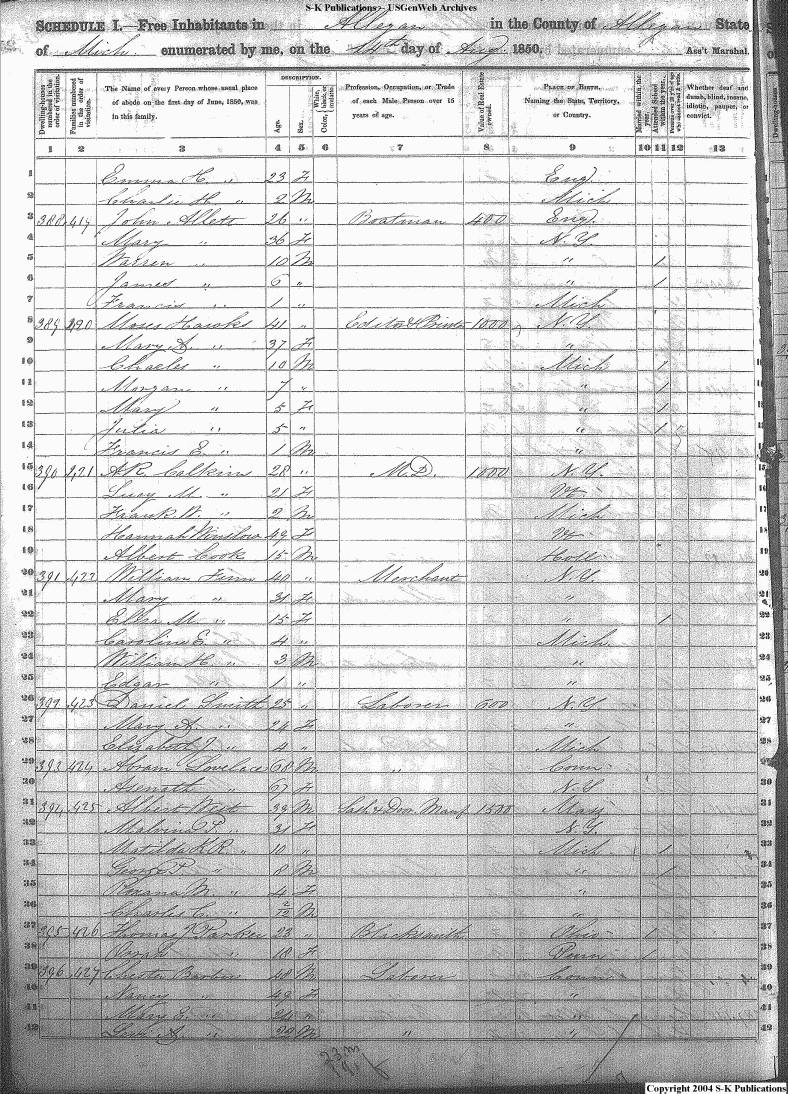 S-K Publications - USGenWeb Archives
SCHEDULE I.—Free Inhabitants in Allegan in the County of Allegan State
of Mich enumerated by me, on the 14th day of Aug 1850. Ass't Marshal.
Dwelling-houses numbered in the order of visitation.
Families numbered in the order of visitation.
The Name of every Person whose usual place of abode on the first day of June, 1850, was in this family.
DESCRIPTION.
Age.
Sex.
Color, White, black, or mulatto.
Profession, Occupation, or Trade of each Male Person over 15 years of age.
Value of Real Estate owned.
PLACE OF BIRTH. Naming the State, Territory, or Country.
Married within the year.
Attended School within the year.
Whether deaf and dumb, blind, insane, idiotic, pauper, or convict.
1 2 3 4 5 6 7 8 9 10 11 12 13
1 Emma H. " 23 F Eng 1
2 Charlie H " 2 M Mich 2
3 388 419 John Allett 26 " Boatman 400 Eng. 3
4 Mary " 36 F N.Y. 4
5 Warren " 10 M " 1 5
6 James " 6 " " 1 6
7 Francis " 1 " Mich 7
8 389 420 Moses Hawks 41 " Editor & Printer 1000 N.Y 8
9 Mary A. " 37 F " 9
10 Charles " 10 M Mich 1 10
11 Morgan " 7 " " 1 11
12 Mary " 5 F " 1 12
13 Julia " 5 " " 1 13
14 Francis E. " 1 M " 14
15 390 421 A.R. Calkins 28 " M.D. 1000 N.Y. 15
16 Lucy M. " 21 F Vt 16
17 Frank W. " 2 M Mich 17
18 Hannah Winslow 49 F Vt 18
19 Albert Cook 15 M Holl 19
20 391 422 William Finn 40 " Merchant N.Y 20
21 Mary " 31 F " 21
22 Eliza M. " 15 F " 1 22
23 Caroline E. " 4 " Mich. 23
24 William H. " 3 M " 24
25 Edgar " 1 " " 25
26 392 423 Daniel Smith 25 " Laborer 600 N.Y 26
27 Mary A. " 24 F " 27
28 Elizabeth J. " 4 " Mich 28
29 393 424 Abram Lovelace 68 M " Conn 29
30 Asenath " 67 F N.Y 30
31 394 425 Albert West 39 M Sash & Door Manf 1500 Mass 31
32 Malvina P. " 31 F N.Y. 32
33 Matilda K.R. " 10 " Mich 1 33
34 George P. " 8 M " 1 34
35 Roxana M. " 4 F " 35
36 Charles C. " 2/12 M " 36
37 395 426 Thomas J Parker 23 " Blacksmith Ohio 1 37
38 18 F Penn 1 38
39 396 427 Chester Barber 48 M Laborer Conn 39
40 Nancy " 49 F " 40
41 Mary E. " 24 " " 41
42 Levi A. " 22 M " " 42
Copyright 2004 S-K Publications